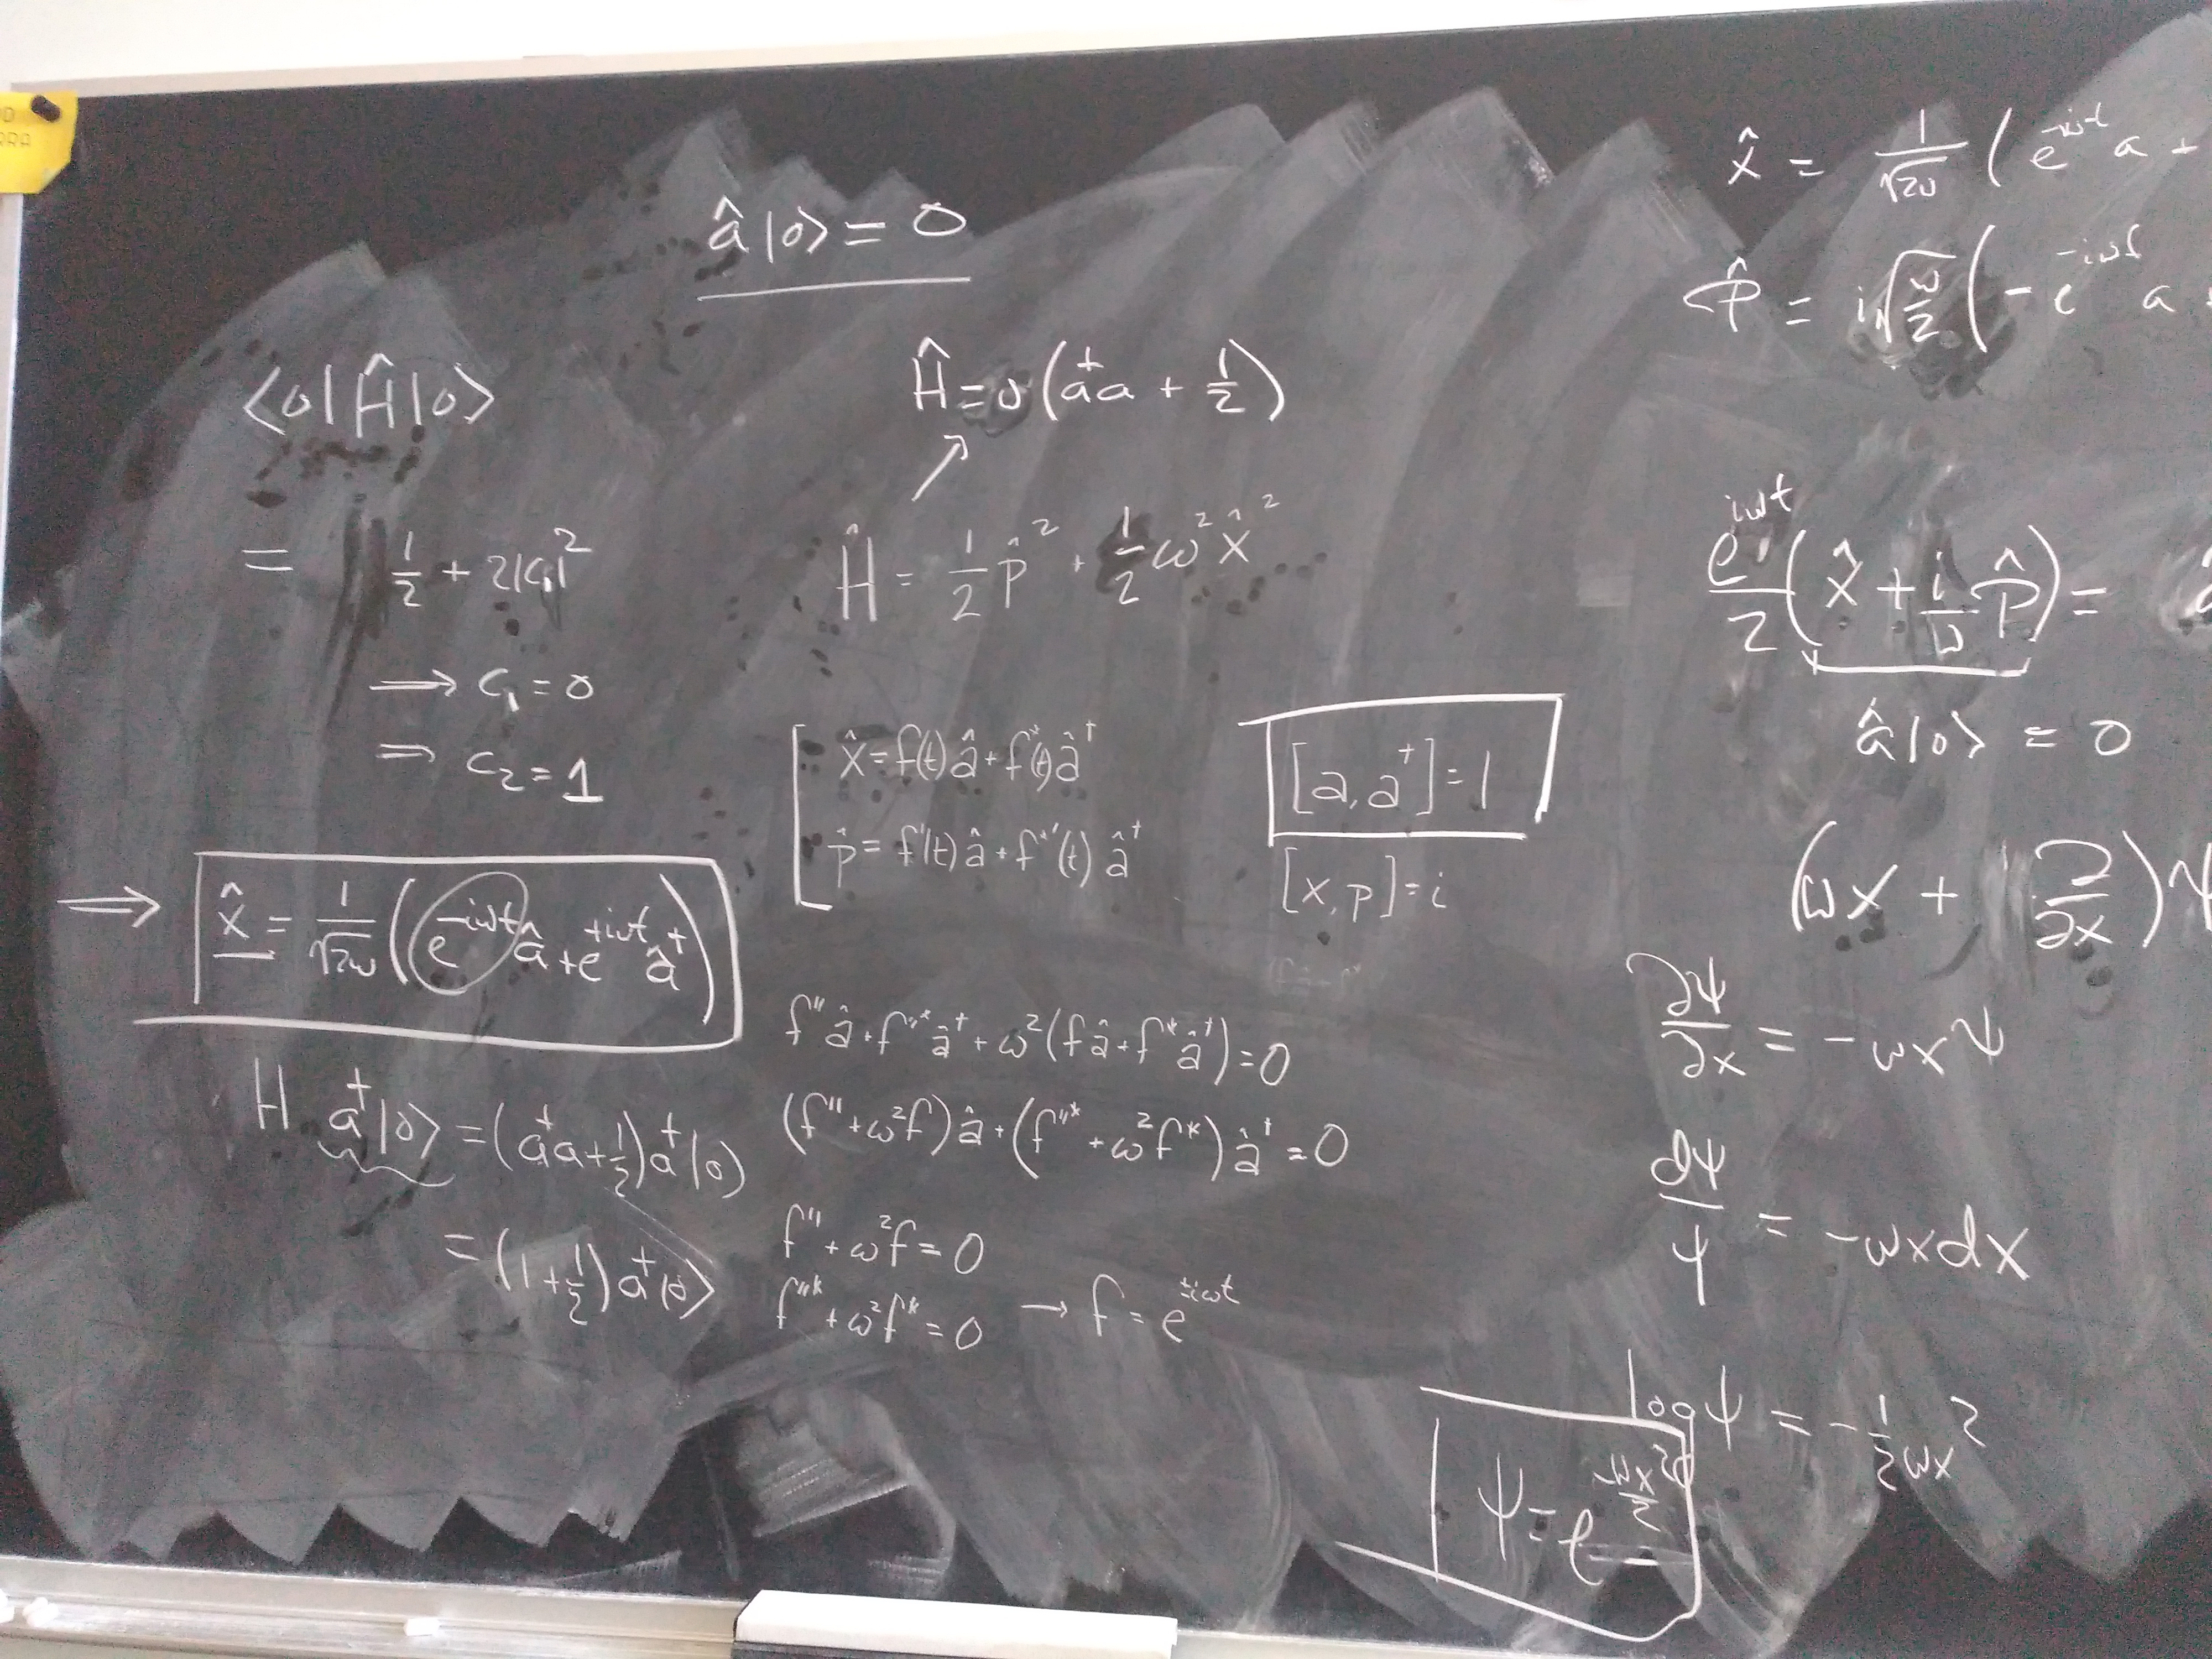 â|0⟩ = 0
⟨0|Ĥ|0⟩
= 1/2 + 2|c₁|²
→ c₁ = 0
⇒ c₂ = 1
⇒ x̂ = 1/√2ω (e^{-iωt} â + e^{+iωt} â†)
H a†|0⟩ = (a†a + 1/2) a†|0⟩
= (1 + 1/2) a†|0⟩
Ĥ = ω(a†a + 1/2)
Ĥ = 1/2 p̂² + 1/2 ω² x̂²
x̂ = f(t) â + f*(t) â†
p̂ = f'(t) â + f*'(t) â†
[a, a†] = 1
[x, p] = i
f'' â + f''* â† + ω²(f â + f* â†) = 0
(f'' + ω² f) â + (f''* + ω² f*) â† = 0
f'' + ω² f = 0
f''* + ω² f* = 0 → f = e^{±iωt}
x̂ = 1/√2ω ( e^{-iωt} a +
p̂ = i√(ω/2) ( - e^{-iωt} a
e^{iωt}/2 ( x̂ + i/ω p̂ ) =
â|0⟩ = 0
(ωx + ∂/∂x) ψ
∂ψ/∂x = -ωxψ
dψ/ψ = -ωx dx
log ψ = -1/2 ωx²
ψ = e^{-ωx²/2}